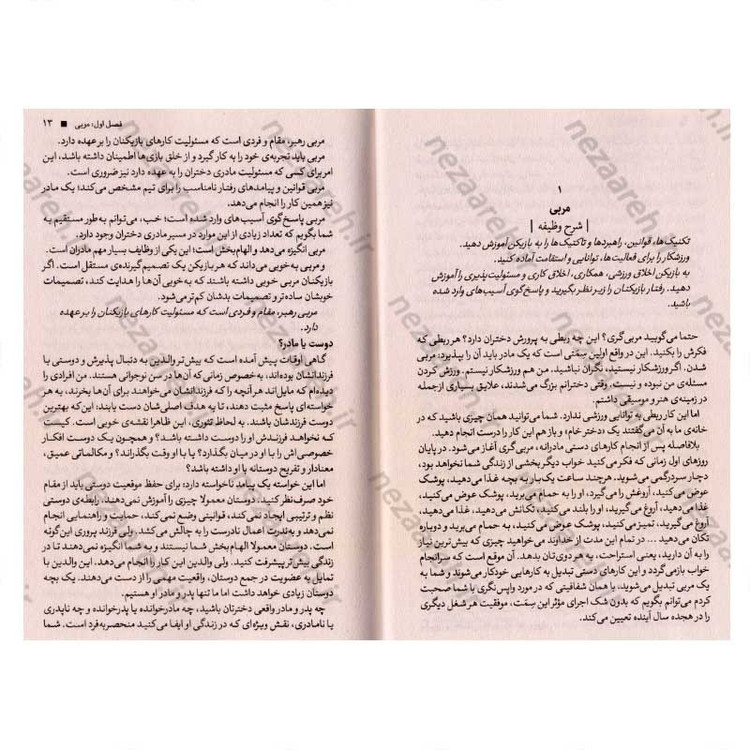 ۱
مربی
| شرح وظیفه |
تکنیک‌ها، قوانین، راهبردها و تاکتیک‌ها را به بازیکن آموزش دهید.
ورزشکار را برای فعالیت‌ها، توانایی و استقامت آماده کنید.
به بازیکن اخلاق ورزشی، همکاری، اخلاق کاری و مسئولیت‌پذیری را آموزش
دهید. رفتار بازیکنتان را زیر نظر بگیرید و پاسخ‌گوی آسیب‌های وارد شده
باشید.
حتما می‌گویید مربی‌گری؟ این چه ربطی به پرورش دختران دارد؟ هر ربطی که
فکرش را بکنید. این در واقع اولین سِمَتی است که یک مادر باید آن را بپذیرد: مربی
شدن. اگر ورزشکار نیستید، نگران نباشید. من هم ورزشکار نیستم. ورزش کردن
مسئله‌ی من نبوده و نیست، وقتی دخترانم بزرگ می‌شدند، علایق بسیاری ازجمله
در زمینه‌ی هنر و موسیقی داشتم.
اما این کار ربطی به توانایی ورزشی ندارد. شما می‌توانید همان چیزی باشید که در
خانه‌ی ما به آن می‌گفتند یک «دختر خام» و باز هم این کار را درست انجام دهید.
بلافاصله پس از انجام کارهای دستی مادرانه، مربی‌گری آغاز می‌شود. در پایان
روزهای اول زمانی که فکر می‌کنید خواب دیگر بخشی از زندگی شما نخواهد بود،
دچار سردرگمی می‌شوید. هرچند ساعت یک‌بار به بچه غذا می‌دهید، پوشک
عوض می‌کنید، آروغش را می‌گیرد، او را به حمام می‌برید، پوشک عوض می‌کنید،
غذا می‌دهید، آروغ می‌گیرید، او را بلند می‌کنید، تکانش می‌دهید، غذا می‌دهید،
آروغ می‌گیرید، تمیز می‌کنید، پوشک عوض می‌کنید، به حمام می‌برید و دوباره
تکان می‌دهید ... در تمام این مدت از خداوند می‌خواهید چیزی که بیش‌ترین نیاز
را به آن دارید، یعنی استراحت، به هر دوی‌تان بدهد. آن موقع است که سرانجام
خواب بازمی‌گردد و این کارهای دستی تبدیل به کارهایی خودکار می‌شوند و شما به
یک مربی تبدیل می‌شوید. با همان شفافیتی که در مورد واپس‌نگری با شما صحبت
کردم می‌توانم بگویم که بدون شک اجرای مؤثر این سِمَت، موفقیت هر شغل دیگری
را در هجده سال آینده تعیین می‌کند.
فصل اول: مربی ■ ۱۳
مربی رهبر، مقام و فردی است که مسئولیت کارهای بازیکنان را بر عهده دارد.
مربی باید تجربه‌ی خود را به کار گیرد و از خلق بازی‌ها اطمینان داشته باشد، این
امر برای کسی که مسئولیت مادری دختران را به عهده دارد نیز ضروری است.
مربی قوانین و پیامدهای رفتار نامناسب را برای تیم مشخص می‌کند؛ یک مادر
نیز همین کار را انجام می‌دهد.
مربی پاسخ‌گوی آسیب‌های وارد شده است؛ خب، می‌توانم به‌طور مستقیم به
شما بگویم که تعداد زیادی از این موارد در مسیر مادری دختران وجود دارد.
مربی انگیزه می‌دهد و الهام‌بخش است؛ این یکی از وظایف بسیار مهم مادران است.
و مربی به‌خوبی می‌داند که هر بازیکن یک تصمیم گیرنده‌ی مستقل است. اگر
بازیکنان مربی خوبی داشته باشند که به‌خوبی آن‌ها را هدایت کند، تصمیمات
خوبشان ساده‌تر و تصمیمات بدشان کم‌تر می‌شود.
مربی رهبر، مقام و فردی است که مسئولیت کارهای بازیکنان را بر عهده
دارد.
دوست یا مادر؟
گاهی اوقات پیش آمده است که بیش‌تر والدین به دنبال پذیرش و دوستی با
فرزندانشان بوده‌اند، به‌خصوص زمانی که آن‌ها در سن نوجوانی هستند. من افرادی را
دیده‌ام که مایل‌اند هر آنچه را که فرزندانشان می‌خواهند برای آن‌ها بخرند، به هر
خواسته‌ای پاسخ مثبت دهند، تا به هدف اصلی‌شان دست یابند: این که بهترین
دوست فرزندشان باشند. به لحاظ تئوری، این ظاهرا نقشه‌ی خوبی است. کیست
که نخواهد فرزندش او را دوست داشته باشد؟ و همچون یک دوست افکار
خصوصی‌اش را با او در میان بگذارد؟ یا با او وقت بگذراند؟ و مکالماتی عمیق،
معنادار و تفریح دوستانه با او داشته باشد؟
اما این خواسته یک پیامد ناخواسته دارد؛ برای حفظ موقعیت دوستی باید از مقام
خود صرف‌نظر کنید. دوستان معمولا چیزی را آموزش نمی‌دهند. رابطه‌ی دوستی
نظم و ترتیبی ایجاد نمی‌کند، قوانینی وضع نمی‌کند، حمایت و راهنمایی انجام
نمی‌دهد و به‌ندرت اعمال نادرست را به چالش می‌کشد. ولی فرزند پروری این‌گونه
است. دوستان معمولا الهام‌بخش شما نیستند و به شما انگیزه نمی‌دهند تا در
زندگی بیش‌تر پیشرفت کنید. ولی والدین این کار را انجام می‌دهد. این والدین با
تمایل به عضویت در جمع دوستان، واقعیت مهمی را از دست می‌دهند. یک بچه
دوستان زیادی خواهد داشت اما ما تنها پدر و مادر او هستیم.
چه پدر و مادر واقعی دخترتان باشید، چه مادرخوانده یا پدرخوانده و چه ناپدری
یا نامادری، نقش ویژه‌ای که در زندگی او ایفا می‌کنید منحصربه‌فرد است. شما
nezaareh.ir